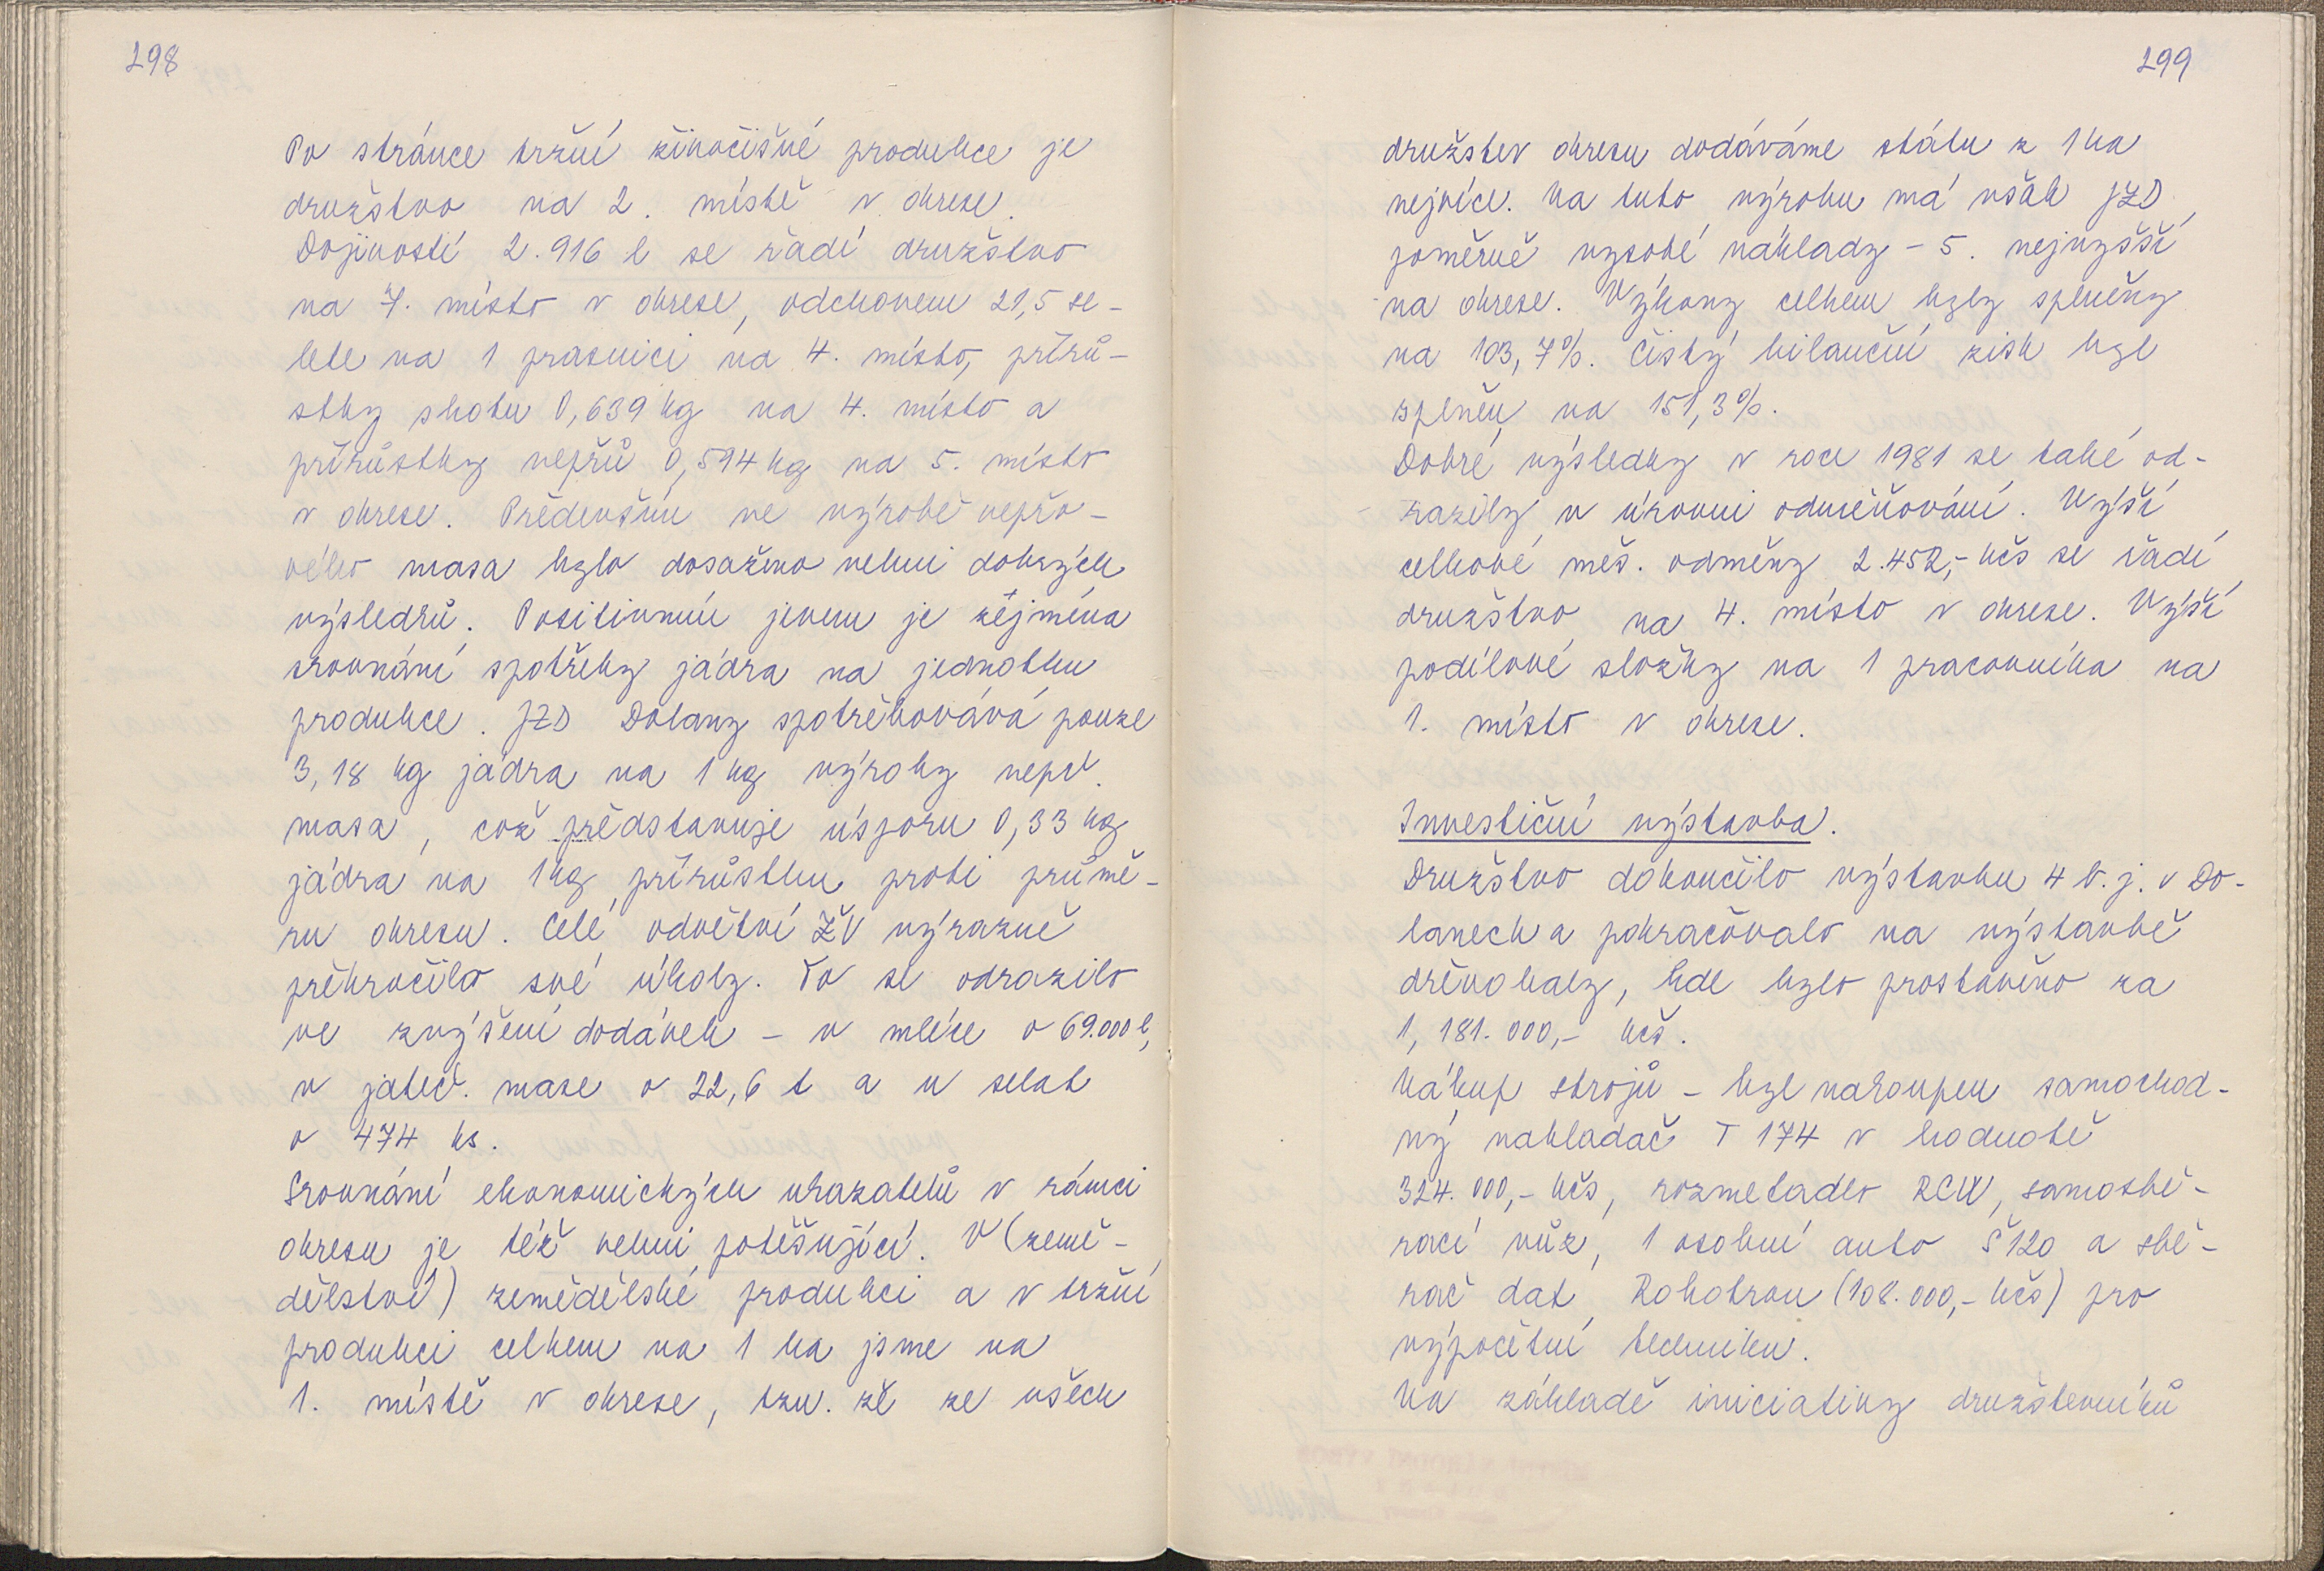 298
Po stránce tržní živočišné produkce je
družstvo na 2. místě v okrese.
Dojivostí 2.916 l se řadí družstvo
na 7. místo v okrese, odchovem 21,5 se-
lete na 1 prasnici na 4. místo, přírů-
stky skotu 0,639 kg na 4. místo a
přírůstky vepřů 0,594 kg na 5. místo
v okrese. Především ve výrobě vepřo-
vého masa bylo dosaženo velmi dobrých
výsledků. Positivním jevem je zejména
srovnání spotřeby jádra na jednotku
produkce. JZD Dolany spotřebovává pouze
3,18 kg jádra na 1 kg výroby vepř.
masa, což představuje úsporu 0,33 kg
jádra na 1kg přírůstku proti průmě-
ru okresu. Celé odvětví ŽV výrazně
překročilo své úkoly. To se odrazilo
ve zvýšení dodávek - v mléce o 69.000 l,
v jateč. mase o 22,6 t a u selat
o 474 ks.
Srovnání ekonomických ukazatelů v rámci
okresu je též velmi potěšující. V (země-
dělství) zemědělské produkci a v tržní
produkci celkem na 1 ha jsme na
1. místě v okrese, tzn. že ze všech
299
družstev okresu dodáváme státu z 1 ha
nejvíce. Na tuto výrobu má však JZD
poměrně vysoké náklady - 5. nejvyšší
na okrese. Výkony celkem byly splněny
na 103,7%. Čistý bilanční zisk byl
splněn na 151,3%.
Dobré výsledky v roce 1981 se také od-
razily v úrovni odměňování. Výší
celkové měs. odměny 2.452,- Kčs se řadí
družstvo na 4. místo v okrese. Výší
podílové složky na 1 pracovníka na
1. místo v okrese.
Investiční výstavba.
Družstvo dokončilo výstavbu 4 b. j. v Do-
lanech a pokračovalo na výstavbě
dřevohaly, kde bylo prostavěno za
1,181.000,- Kčs.
Nákup strojů - byl nakoupen samochod-
ný nakladač T 174 v hodnotě
324.000,- Kčs, rozmetadlo RCW, samosbě-
rací vůz, 1 osobní auto Š 120 a sbě-
rač dat Robotron (108.000,- Kčs) pro
výpočetní techniku.
Na základě iniciativy družstevníků